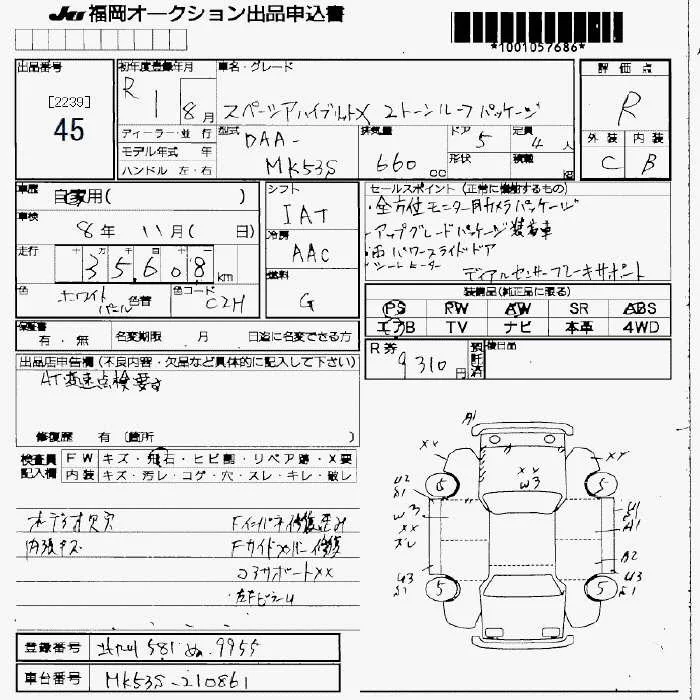 JU 福岡オークション出品申込書
*1001057686*
出品番号
[2239]
45
初年度登録年月
R 1 8月
車名・グレード
スペーシアハイブリットX 2トーンルーフパッケージ
評価点
R
外装 内装
C B
ディーラー・並行
モデル年式 年
ハンドル 左・右
型式
DAA-
MK53S
排気量
660 cc
ドア
5
定員
4人
形状
積載
kg
車歴
自家用( )
車検
8年 11月( 日)
走行
十 万 千 百 十 一
35,608 km
色
ホワイトパール
色替
色コード
C2H
シフト
IAT
冷房
AAC
燃料
G
セールスポイント (正常に機能するもの)
・全方位モニター用カメラパッケージ
・アップグレードパッケージ装着車
パワースライドドア
シートヒーター デュアルセンサーブレーキサポート
装備品(純正品に限る)
PS PW AW SR ABS
エアB TV ナビ 本革 4WD
保証書
有・無
名変期限 月 日迄に名変できる方
R券
9310円
預託済
後日品
出品店申告欄(不良内容・欠品など具体的に記入して下さい)
AT変速点検要す
修復歴 有 (箇所 )
検査員記入欄
FW キズ・飛石・ヒビ割・リペア跡・X要
内装 キズ・汚レ・コゲ・穴・スレ・キレ・破レ
オーディオ欠穴
内張キズ
Fインパネ修復歪み
Fサイドメンバー修復
コアサポートXX
A1
XX
XX
XX
W3
U2
S1
W3
XX
U3
S1
5
5
5
5
U1
A1
A2
U3
S1
登録番号
581 ぬ 9955
車台番号
MK53S-210861